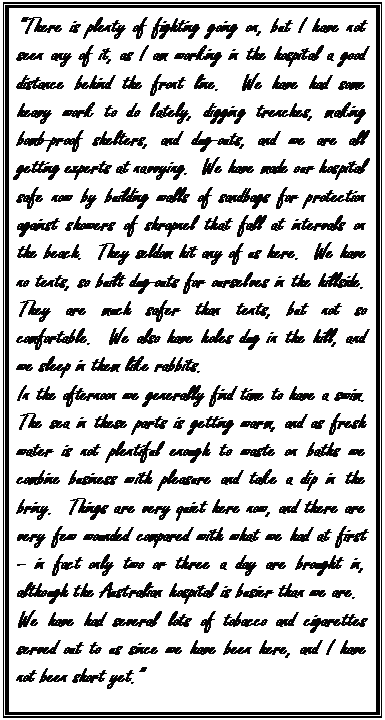 "There is plenty of fighting going on, but I have not
seen any of it, as I am working in the hospital a good
distance behind the front line. We have had some
heavy work to do lately, digging trenches, making
bomb-proof shelters, and dug-outs, and we are all
getting experts at navvying. We have made our hospital
safe now by building walls of sandbags for protection
against showers of shrapnel that fall at intervals on
the beach. They seldom hit any of us here. We have
no tents, so built dug-outs for ourselves in the hillside.
They are much safer than tents, but not so
comfortable. We also have holes dug in the hill, and
we sleep in them like rabbits.
In the afternoon we generally find time to have a swim.
The sea in these parts is getting warm, and as fresh
water is not plentiful enough to waste on baths we
combine business with pleasure and take a dip in the
briny. Things are very quiet here now, and there are
very few wounded compared with what we had at first
– in fact only two or three a day are brought in,
although the Australian hospital is busier than we are.
We have had several lots of tobacco and cigarettes
served out to us since we have been here, and I have
not been short yet."